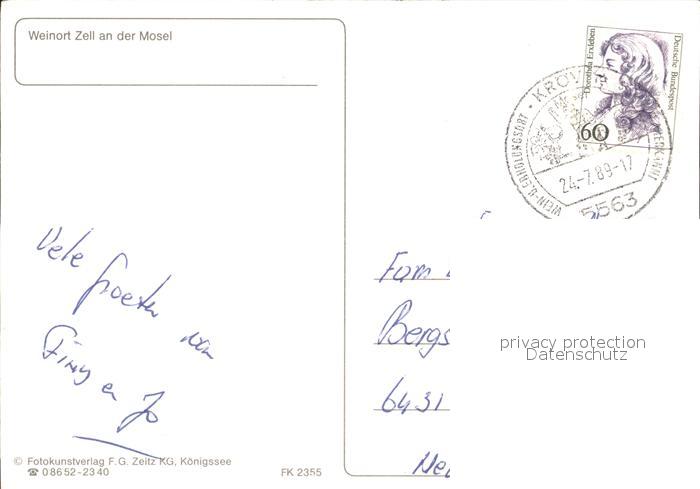 Weinort Zell an der Mosel
Dorothea Erxleben
Deutsche Bundespost
60
KRÖV
WEIN-U. ERHOLUNGSORT
24.-7.89-17
5563
Vele groeten van
Finy en Jo
Fam
Bergs
6431
privacy protection
Datenschutz
© Fotokunstverlag F. G. Zeitz KG, Königssee
☎ 0 86 52 - 23 40
FK 2355